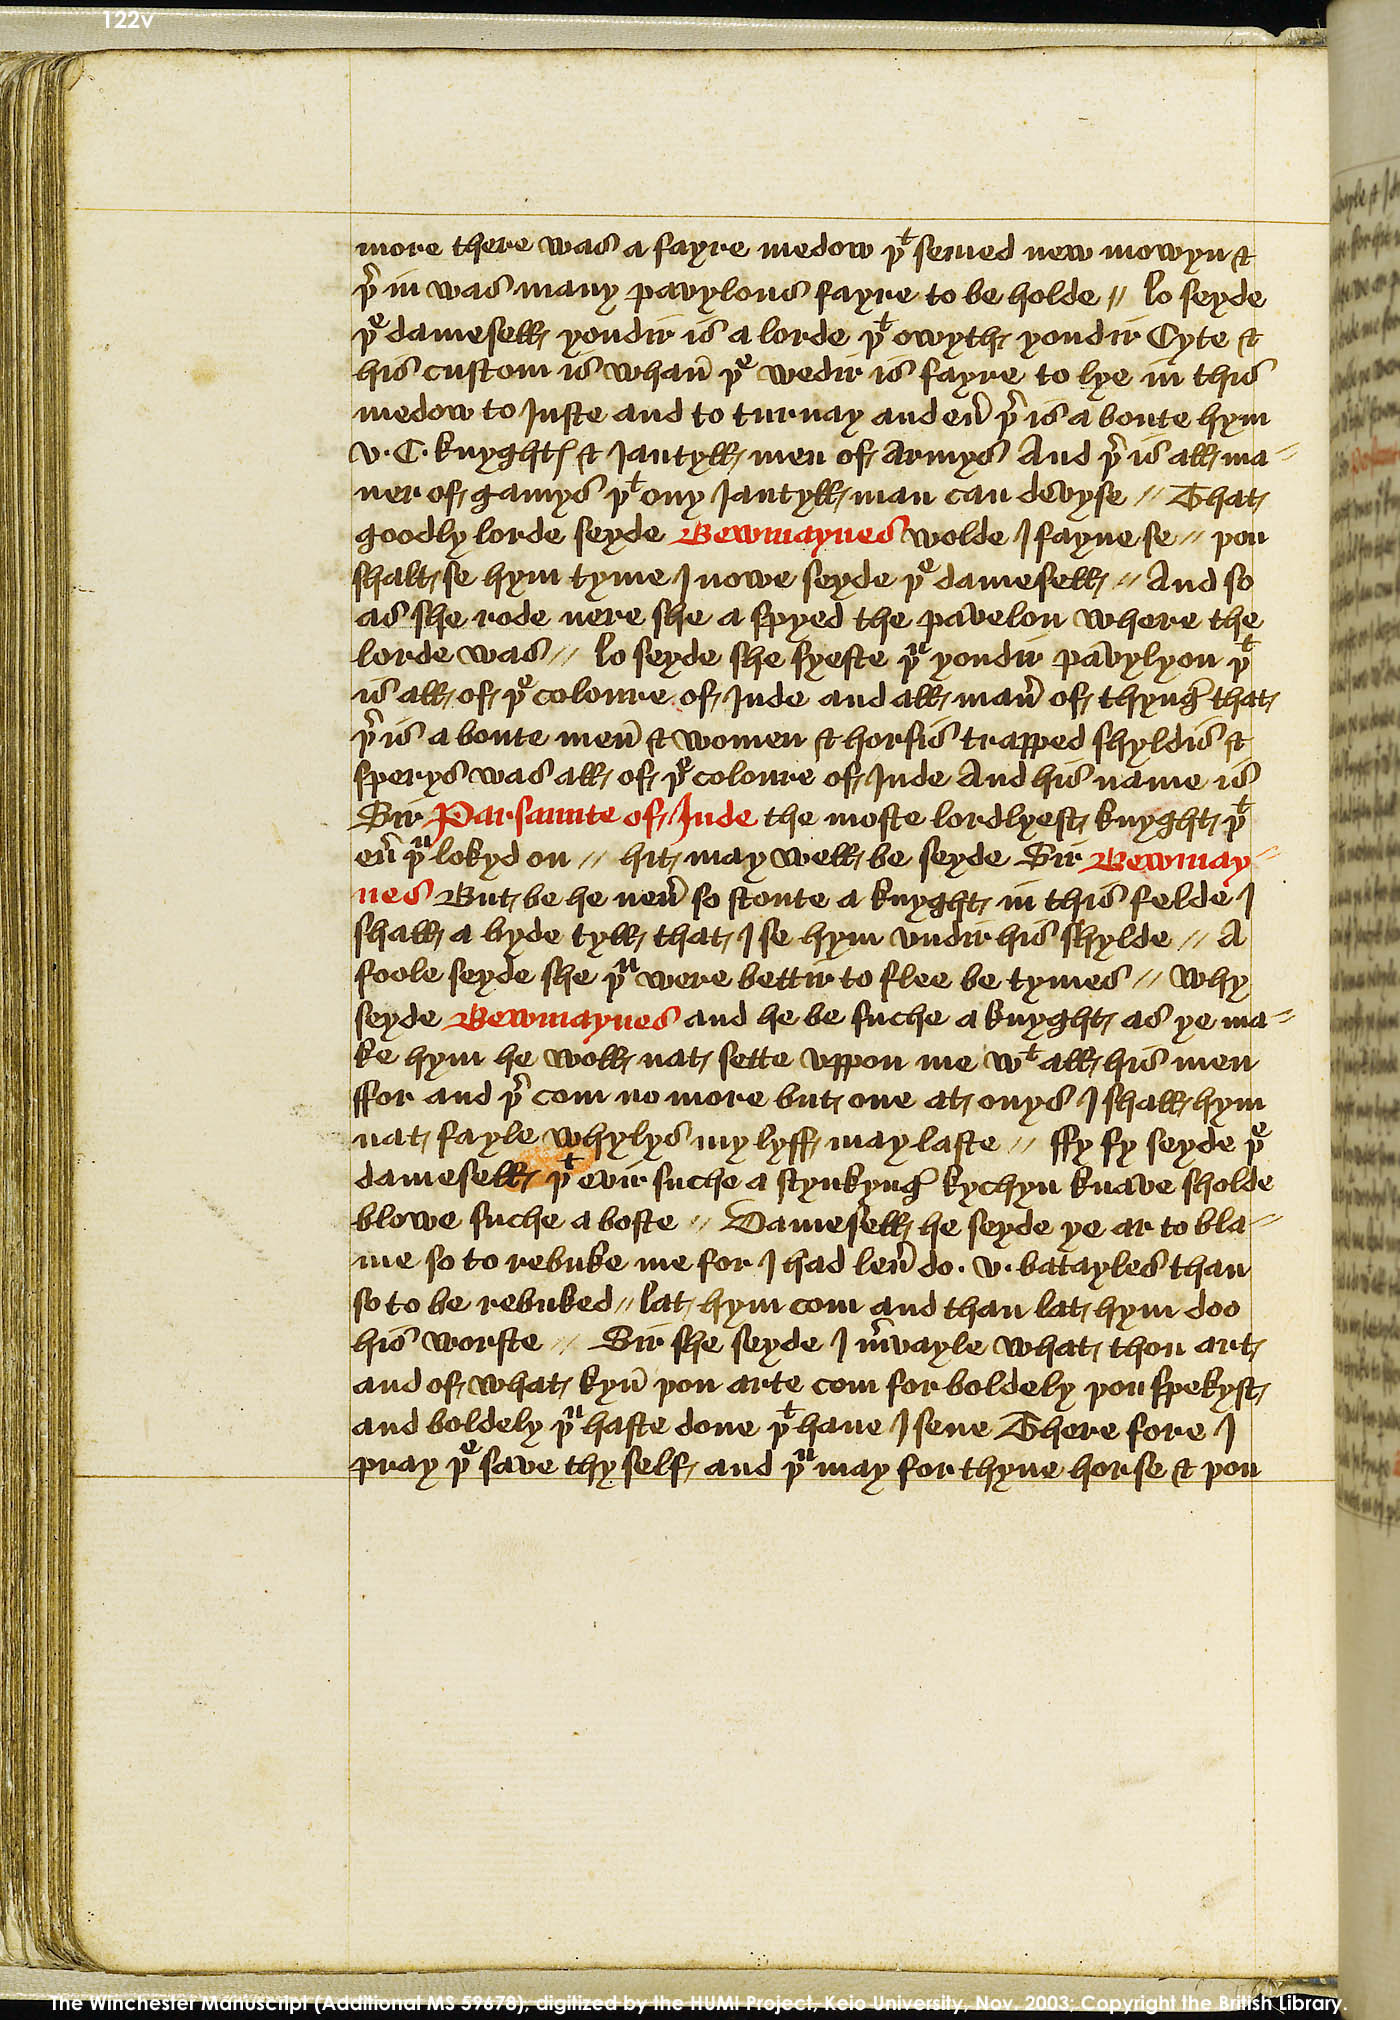 122v
more there was a fayre medow þᵗ semed new mowyn &
þr̄ in was many pavylons fayre to be holde // lo seyde
þᵉ damesell yondir is a lorde þᵗ owyth yondir Cyte &
his custom is whan̄ þᵉ wedir is fayre to lye in this
medow to Juste and to turnay and eu̅ þr̄ is a boute hym
v. C. knyghtꝭ & Jantyll men of Armys And þr̄ is all ma-
ner of gamys þᵗ ony Jantyll man can devyse // That
goodly lorde seyde Bewmaynes wolde I fayne se // þou
shalt se hym tyme I nowe seyde þᵉ damesell // And so
as she rode nere she a spyed the pavelon where the
lorde was // lo seyde she syeste þᵘ yondir pavylyon þᵗ
is all of þᵉ coloure of Inde and all man̄ of thynḡ that
þr̄ is a boute men̄ & women & horsis trapped shyldis &
sperys was all of þᵉ coloure of Inde And his name is
Sir Parsaunte of Inde the moste lordlyest knyght þᵗ
eu̅ þᵘ lokyd on // hit may well be seyde Sir Bewmay-
nes But be he neu̅ so stoute a knyght in this felde I
shall a byde tyll that I se hym vndir his shylde // A
foole seyde she þᵘ were bettir to flee be tymes // Why
seyde Bewmaynes and he be suche a knyght as ye ma-
ke hym he woll nat sette vppon me wᵗ all his men
ffor and þr̄ com no more but one at onys I shall hym
nat fayle whylys my lyff may laste // ffy fy seyde þᵉ
damesell þᵗ evir suche a stynkynḡ kychyn knave sholde
blowe suche a boste // Damesell he seyde ye ar to bla-
me so to rebuke me for I had leu̅ do . v . batayles than
so to be rebuked // lat hym com and than lat hym doo
his worste // Sir she seyde I m̄vayle what thou art
and of what kyn̄ þou arte com for boldely þou spekyst
and boldely þᵘ haste done þᵗ haue I sene There fore I
pray þᵉ save thy self and þᵘ may for thyne horse & þou
The Winchester Manuscript (Additional MS 59678), digitized by the HUMI Project, Keio University, Nov. 2003; Copyright the British Library.